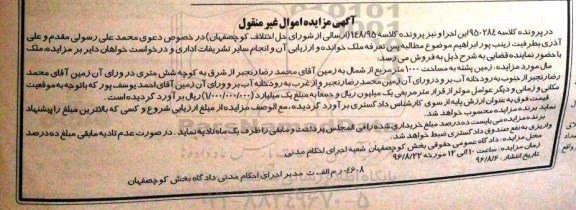 آگهی مزایده اموال غیر منقول
در پرونده کلاسه 950284 این اجرا و نیز پرونده کلاسه 148/95 (ارسالی از شورای حل اختلاف کوچصفهان) در خصوص دعوی محمد علی رسولی مقدم و علی
آذری بطرفیت زینب پور ابراهیم موضوع مطالبه پس تعرفه ملک خوانده و ارزیابی آن و انجام سایر تشریفات اداری و درخواست خواهان دایر بر مزایده ملک
با حضور نماینده قضایی به شرح ذیل به فروش می رسد:
ملک مورد مزایده: زمین پشته به مساحت 1000 متر مربع از شمال به زمین آقای محمد رضا رنجبر از شرق به کوچه شش متری در ورای آن زمین آقای محمد
رضا رنجبر از جنوب به رودخانه آب بر و در ورای آن زمین آقای محمد رضا رنجبر و از غرب به رودخانه آب بر و ورای آن زمین آقای احمد یوسف پور که با توجه به موقعیت
مکانی و زمانی و دیگر عوامل موثر از قرار متر مربعی یک میلیون ریال و جمعا به مبلغ یک میلیارد (1/000/000/000) ریال برآورد گردیده است.
قیمت فوق به عنوان ارزش پایه از سوی کارشناس دادگستری برآورد گردیده، مع الوصف مزایده از مبلغ ارزیابی شروع و کسی که بالاترین مبلغ را پیشنهاد
نماید برنده مزایده محسوب خواهد شد.
برنده مزایده می بایست ده درصد مبلغ خریداری شده را فی المجلس پرداخت و مابقی را ظرف یک ماه تادیه نماید. در صورت عدم تادیه مابقی مبلغ ده درصد
واریزی به نفع صندوق دادگستری ضبط خواهد شد.
محل مزایده: دادگاه عمومی حقوقی بخش کوچصفهان شعبه اجرای احکام مدنی
زمان مزایده: ساعت 10 الی 12 مورخه 96/8/22
تاریخ انتشار: 96/8/6
4608 - ر م الف ث مدیر اجرای احکام مدنی دادگاه بخش کوچصفهان